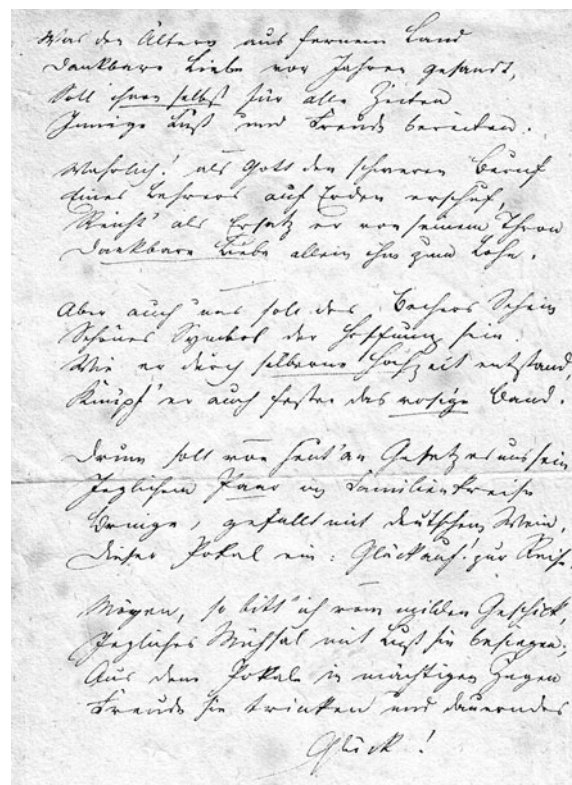 Was den Ältern aus fernem Land
Dankbare Liebe vor Jahren gesandt,
Soll ihnen selbst für alle Zeiten
Innige Lust und Freude bereiten.
Wahrlich! als Gott den schweren Beruf
Eines Lehrers auf Erden erschuf,
Reicht' als Ersatz er von seinem Thron
Dankbare Liebe allein ihm zum Lohn.
Aber auch uns soll des Bechers Schein
Schönes Symbol der Hoffnung sein.
Wie er durch silberne Hochzeit entstand,
Knüpf' er auch fester das rosige Band.
Drum soll von heut' an Gesetz es uns sein
Jeglichem Paar im Familienkreise
Bringe, gefüllt mit deutschem Wein,
Dieser Pokal ein: Glückauf! zur Reise.
Mögen, so bitt' ich vom milden Geschick,
Jegliches Mühsal mit Lust sie besiegen;
Aus dem Pokale in mächtigen Zügen
Freude sie trinken und dauerndes
Glück!